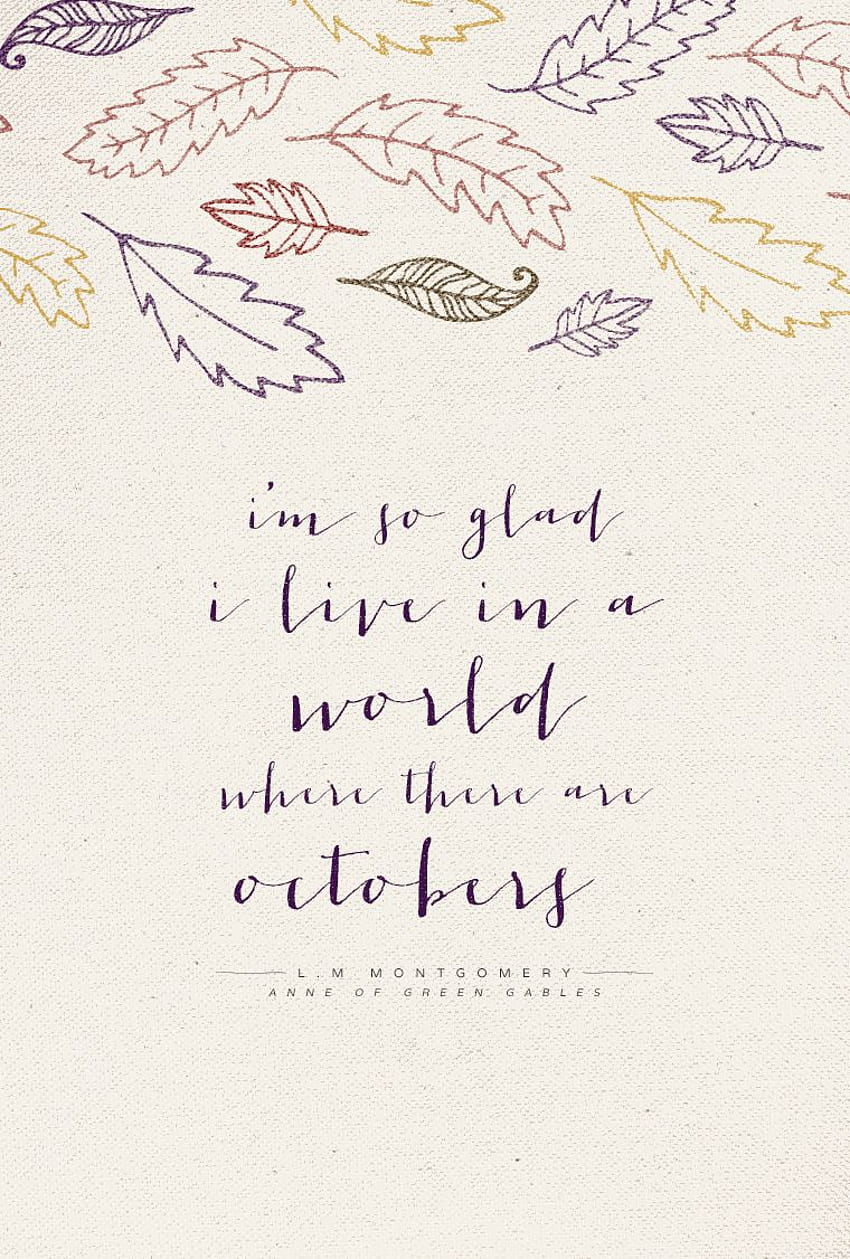 i'm so glad
i live in a
world
where there are
octobers
L.M MONTGOMERY
ANNE OF GREEN GABLES